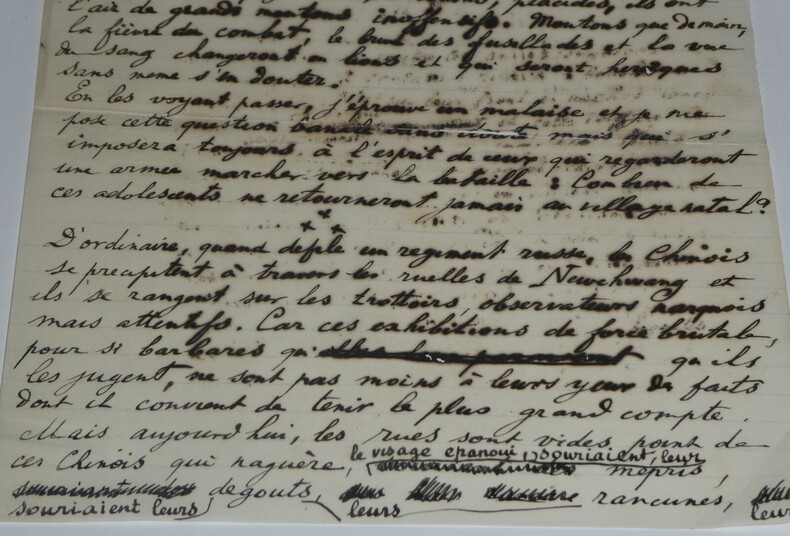 l'air de grands moutons inoffensifs. Moutons que demain,
la fièvre du combat, le bruit des fusillades et la vue
du sang changeront en lions et qui seront héroïques
sans meme s'en douter.
En les voyant passer, j'éprouve un malaise et je me
pose cette question banale mais qui s'
imposera toujours à l'esprit de ceux qui regarderont
une armée marcher vers la bataille : Combien de
ces adolescents ne retourneront jamais au village natal?
D'ordinaire, quand defile un regiment russe, les Chinois
se precipitent à travers les ruelles de Newchwang et
ils se rangent sur les trottoirs, observateurs narquois
mais attentifs. Car ces exhibitions de force brutale,
pour si barbares qu' qu'ils
les jugent, ne sont pas moins à leurs yeux des faits
dont il convient de tenir le plus grand compte.
Mais aujourd'hui, les rues sont vides, point de
le visage epanoui, souriaient, leur
ces Chinois qui naguère, mepris,
degouts, rancunes,
souriaient leurs leurs leur